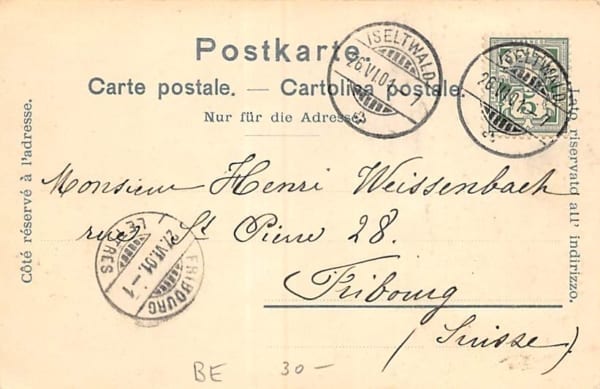 Postkarte.
Carte postale. — Cartolina postale.
Nur für die Adresse.
Côté réservé à l'adresse.
Lato riservato all' indirizzo.
ISELTWALD
26.VI.01.-7
ISELTWALD
26.VI.01.-7
5
Monsieur Henri Weissenbach
rue St Pierre 28.
Fribourg
(Suisse)
FRIBOURG
LETTRES
27.VI.01.-1
BE 30-